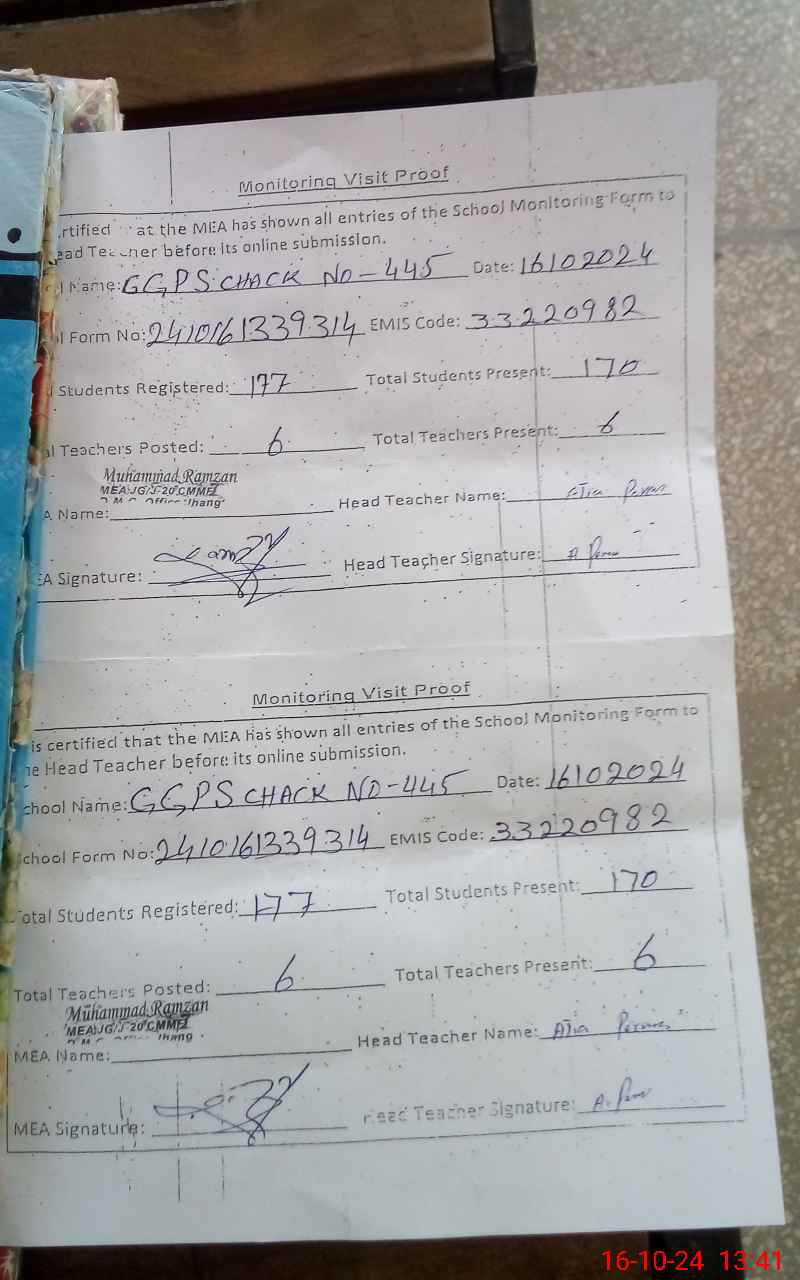 Monitoring Visit Proof
rtified at the MEA has shown all entries of the School Monitoring Form to
ead Teacher before its online submission.
Name: GGPS CHACK NO-445 Date: 16102024
l Form No: 2410161339314 EMIS Code: 33220982
Students Registered: 177 Total Students Present: 170
al Teachers Posted: 6 Total Teachers Present: 6
Muhammad Ramzan
MEA\JG/J-20 CMMF
Office Jhang
A Name: Head Teacher Name: Atia
EA Signature: Head Teacher Signature: A.
Monitoring Visit Proof
is certified that the MEA has shown all entries of the School Monitoring Form to
he Head Teacher before its online submission.
chool Name: GGPS CHACK NO-445 Date: 16102024
chool Form No: 2410161339314 EMIS Code: 33220982
Total Students Registered: 177 Total Students Present: 170
Total Teachers Posted: 6 Total Teachers Present: 6
Muhammad Ramzan
MEA\JG/J-20 CMMF
Jhang
MEA Name: Head Teacher Name: Atia
MEA Signature: Head Teacher Signature: A.
16-10-24 13:41